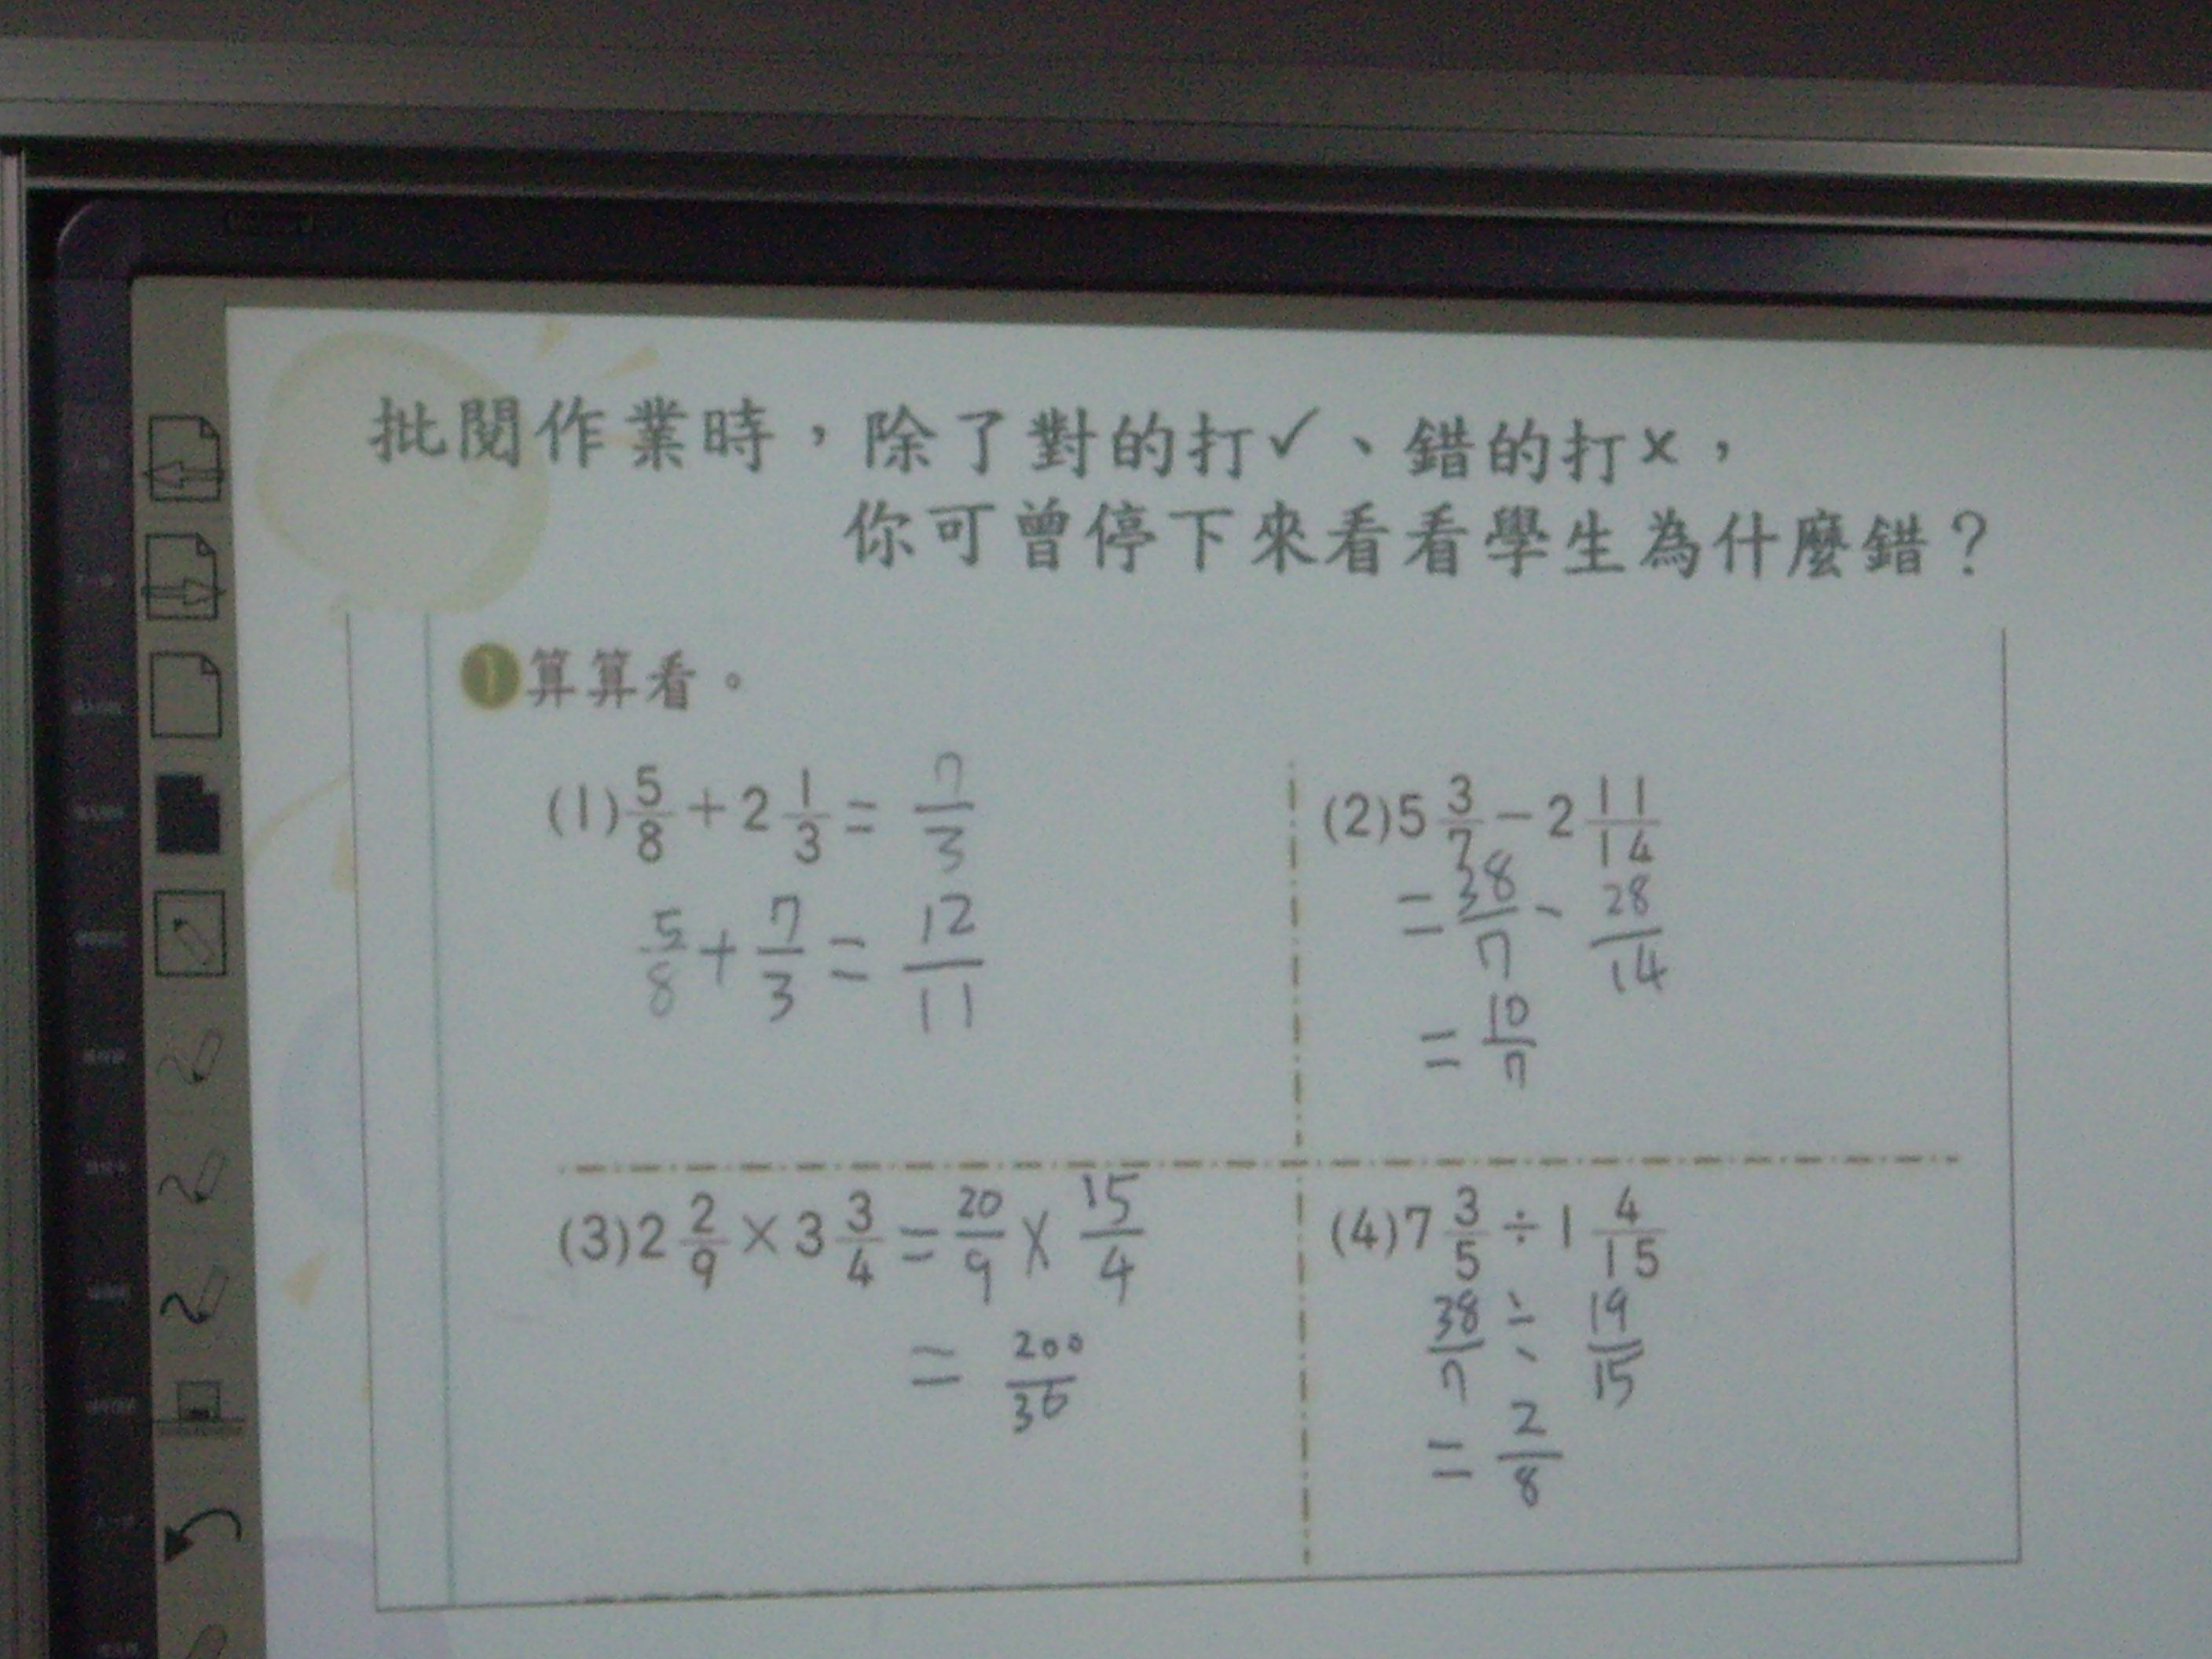 批閱作業時，除了對的打✓、錯的打×，
你可曾停下來看看學生為什麼錯？
❶算算看。
(1) 5/8 + 2 1/3 = 7/3
5/8 + 7/3 = 12/11
(2) 5 3/7 − 2 11/14
= 38/7 - 28/14
= 10/7
(3) 2 2/9 × 3 3/4 = 20/9 × 15/4
= 200/36
(4) 7 3/5 ÷ 1 4/15
38/7 ÷ 19/15
= 2/8